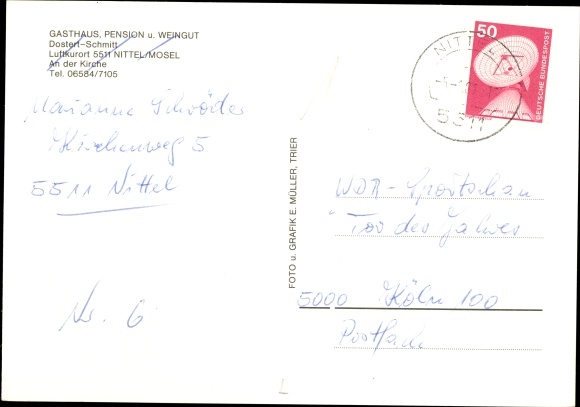 GASTHAUS, PENSION u. WEINGUT
Dostert-Schmitt
Luftkurort 5511 NITTEL/MOSEL
An der Kirche
Tel. 06584/7105
Marianne Schröder
Kirchenweg 5
5511 Nittel
Nr. 6
FOTO u. GRAFIK E. MÜLLER, TRIER
NITTEL
5511
50
DEUTSCHE BUNDESPOST
WDR-Sportschau
Tor des Jahres
5000 Köln 100
Postfach